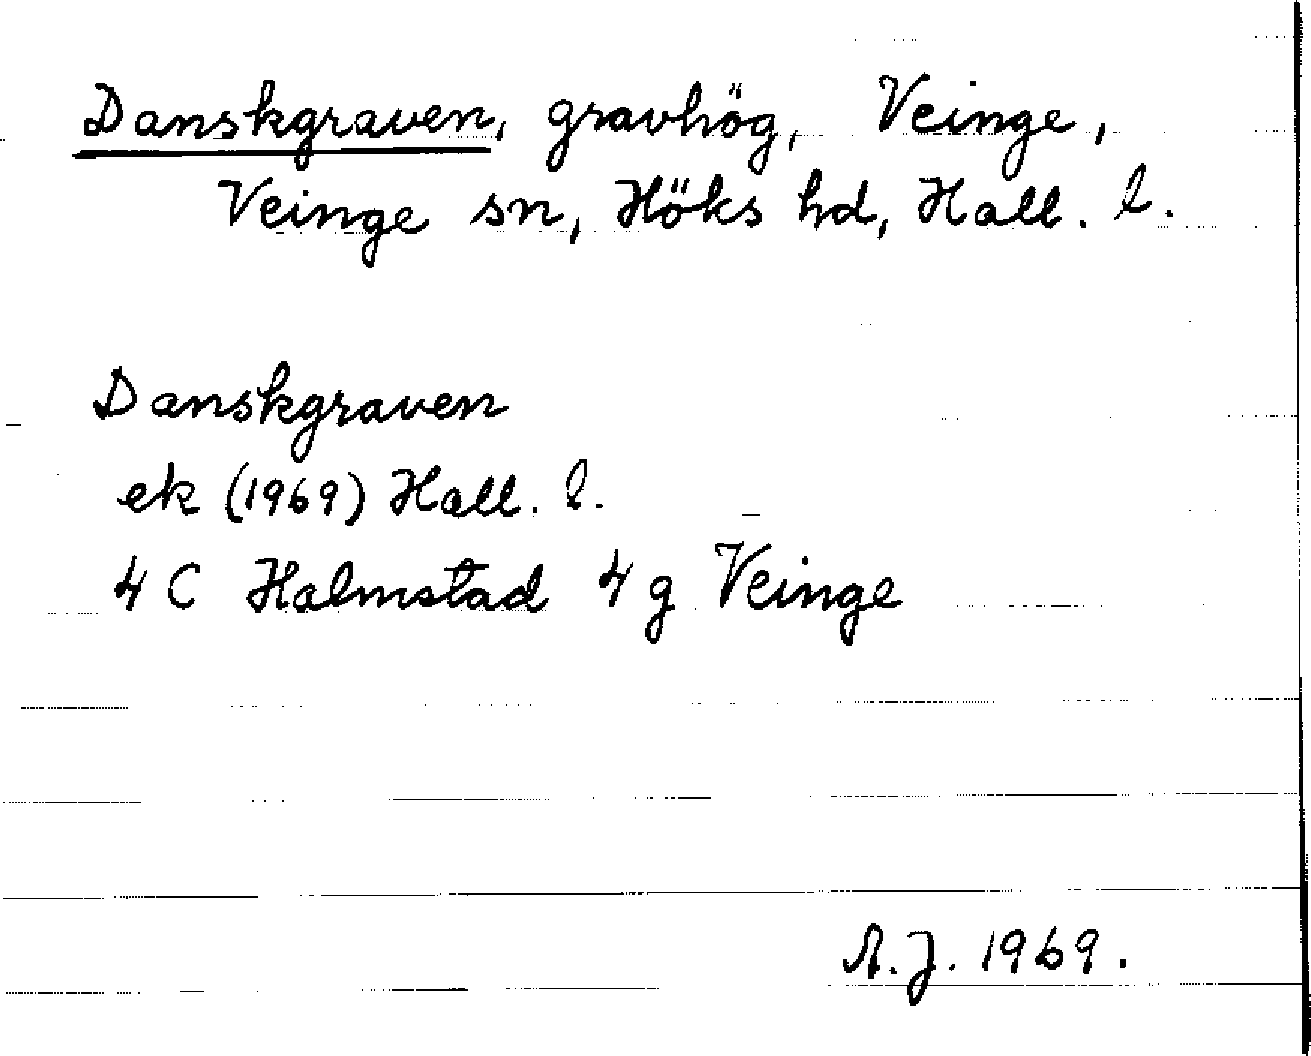 Danskgraven, gravhög, Veinge,
Veinge sn, Höks hd, Hall. l.
Danskgraven
ek (1969) Hall. l.
4 C Halmstad 4 g Veinge
A.J. 1969.